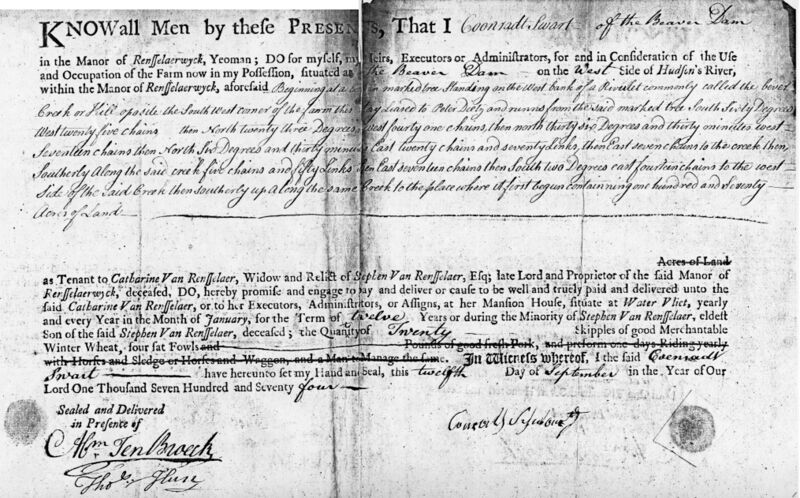 KNOW all Men by these PRESENTS, That I Coonradt Swart of the Beaver Dam
in the Manor of Rensselaerwyck, Yeoman; DO for myself, my Heirs, Executors or Administrators, for and in Consideration of the Use
and Occupation of the Farm now in my Possession, situated at the Beaver Dam on the West Side of Hudson's River,
within the Manor of Rensselaerwyck, aforesaid Beginning at a marked tree Standing on the West bank of a Rivulet commonly called the bever
Creek or Kill oposite the South West corner of the farm this Day Leased to Peter and runns from the said marked tree South Sixty Degrees
West twenty five chains then North twenty three Degrees West fourty one chains, then north thirty six Degrees and thirty minutes west
Seventeen chains then North Six Degrees and thirty minutes East twenty chains and seventy Links, then East seven chains to the creek then
Southerly Along the said creek five chains and fifty Links then East seventeen chains then South two Degrees east fourteen chains to the west
Side of the Said Creek then Southerly up Along the same Creek to the place where it first begun containing one hundred and Seventy
Acres of Land
Acres of Land
as Tenant to Catharine Van Rensselaer, Widow and Relict of Stephen Van Rensselaer, Esq; late Lord and Proprietor of the said Manor of
Rensselaerwyck, deceased, DO, hereby promise and engage to pay and deliver or cause to be well and truely paid and delivered unto the
said Catharine Van Rensselaer, or to her Executors, Administrators, or Assigns, at her Mansion House, situate at Water Vliet, yearly
and every Year in the Month of January, for the Term of twelve Years or during the Minority of Stephen Van Rensselaer, eldest
Son of the said Stephen Van Rensselaer, deceased; the Quantity of Twenty Skipples of good Merchantable
Winter Wheat, four fat Fowls and Pounds of good fresh Pork, and preform one days Riding yearly
with Horses and Sledge or Horses and Waggon, and a Man to Manage the same. In Witness whereof, I the said Coenradt
Swart have hereunto set my Hand and Seal, this twelfth Day of September in the Year of Our
Lord One Thousand Seven Hundred and Seventy four
Sealed and Delivered
in Presence of
Abm Ten Broeck